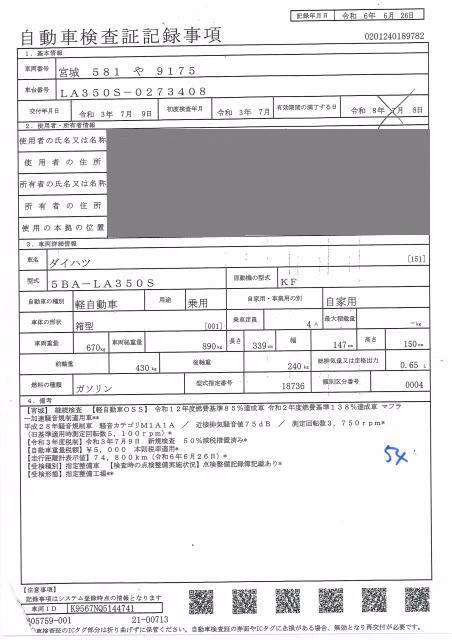 記録年月日 令和 6年 6月 26日
自動車検査証記録事項
0201240189782
1. 基本情報
車両番号 宮城 581 や 9175
車台番号 LA350S-0273408
交付年月日 令和 3年 7月 9日 初度検査年月 令和 3年 7月 有効期間の満了する日 令和 8年 7月 8日
2. 使用者・所有者情報
使用者の氏名又は名称
使用者の住所
所有者の氏名又は名称
所有者の住所
使用の本拠の位置
3. 車両詳細情報
車名 ダイハツ [151]
型式 5BA-LA350S 原動機の型式 KF
自動車の種別 軽自動車 用途 乗用 自家用・事業用の別 自家用
車体の形状 箱型 [001] 乗車定員 4人 最大積載量 -kg
車両重量 670kg 車両総重量 890kg 長さ 339cm 幅 147cm 高さ 150cm
前軸重 430kg 後軸重 240kg 総排気量又は定格出力 0.65 L
燃料の種類 ガソリン 型式指定番号 18736 類別区分番号 0004
4. 備考
[宮城] 継続検査 【軽自動車OSS】 令和12年度燃費基準85%達成車 令和2年度燃費基準138%達成車 マフラ
ー加速騒音規制適用車**
平成28年騒音規制車 騒音カテゴリM1A1A / 近接排気騒音値75dB / 測定回転数3,750rpm*
(旧基準適用時測定回転数5,100rpm)*
【令和3年度税制】令和3年7月9日 新規検査 50%減税措置済み*
【自動車重量税額】¥5,000 本則税率適用*
【走行距離計表示値】74,800km (令和6年6月26日)*
【受検種別】指定整備車 【検査時の点検整備実施状況】点検整備記録簿記載あり*
【受検形態】指定整備工場**
54
【注意事項】
記録事項はシステム登録時点の情報となります
車両ID K9567NQ5144741
405759-001 21-00713
車検査証のICタグ部分は折り曲げずに保管ください。自動車検査証の券面やICタグに名損がある場合、無効となり再交付が必要です。